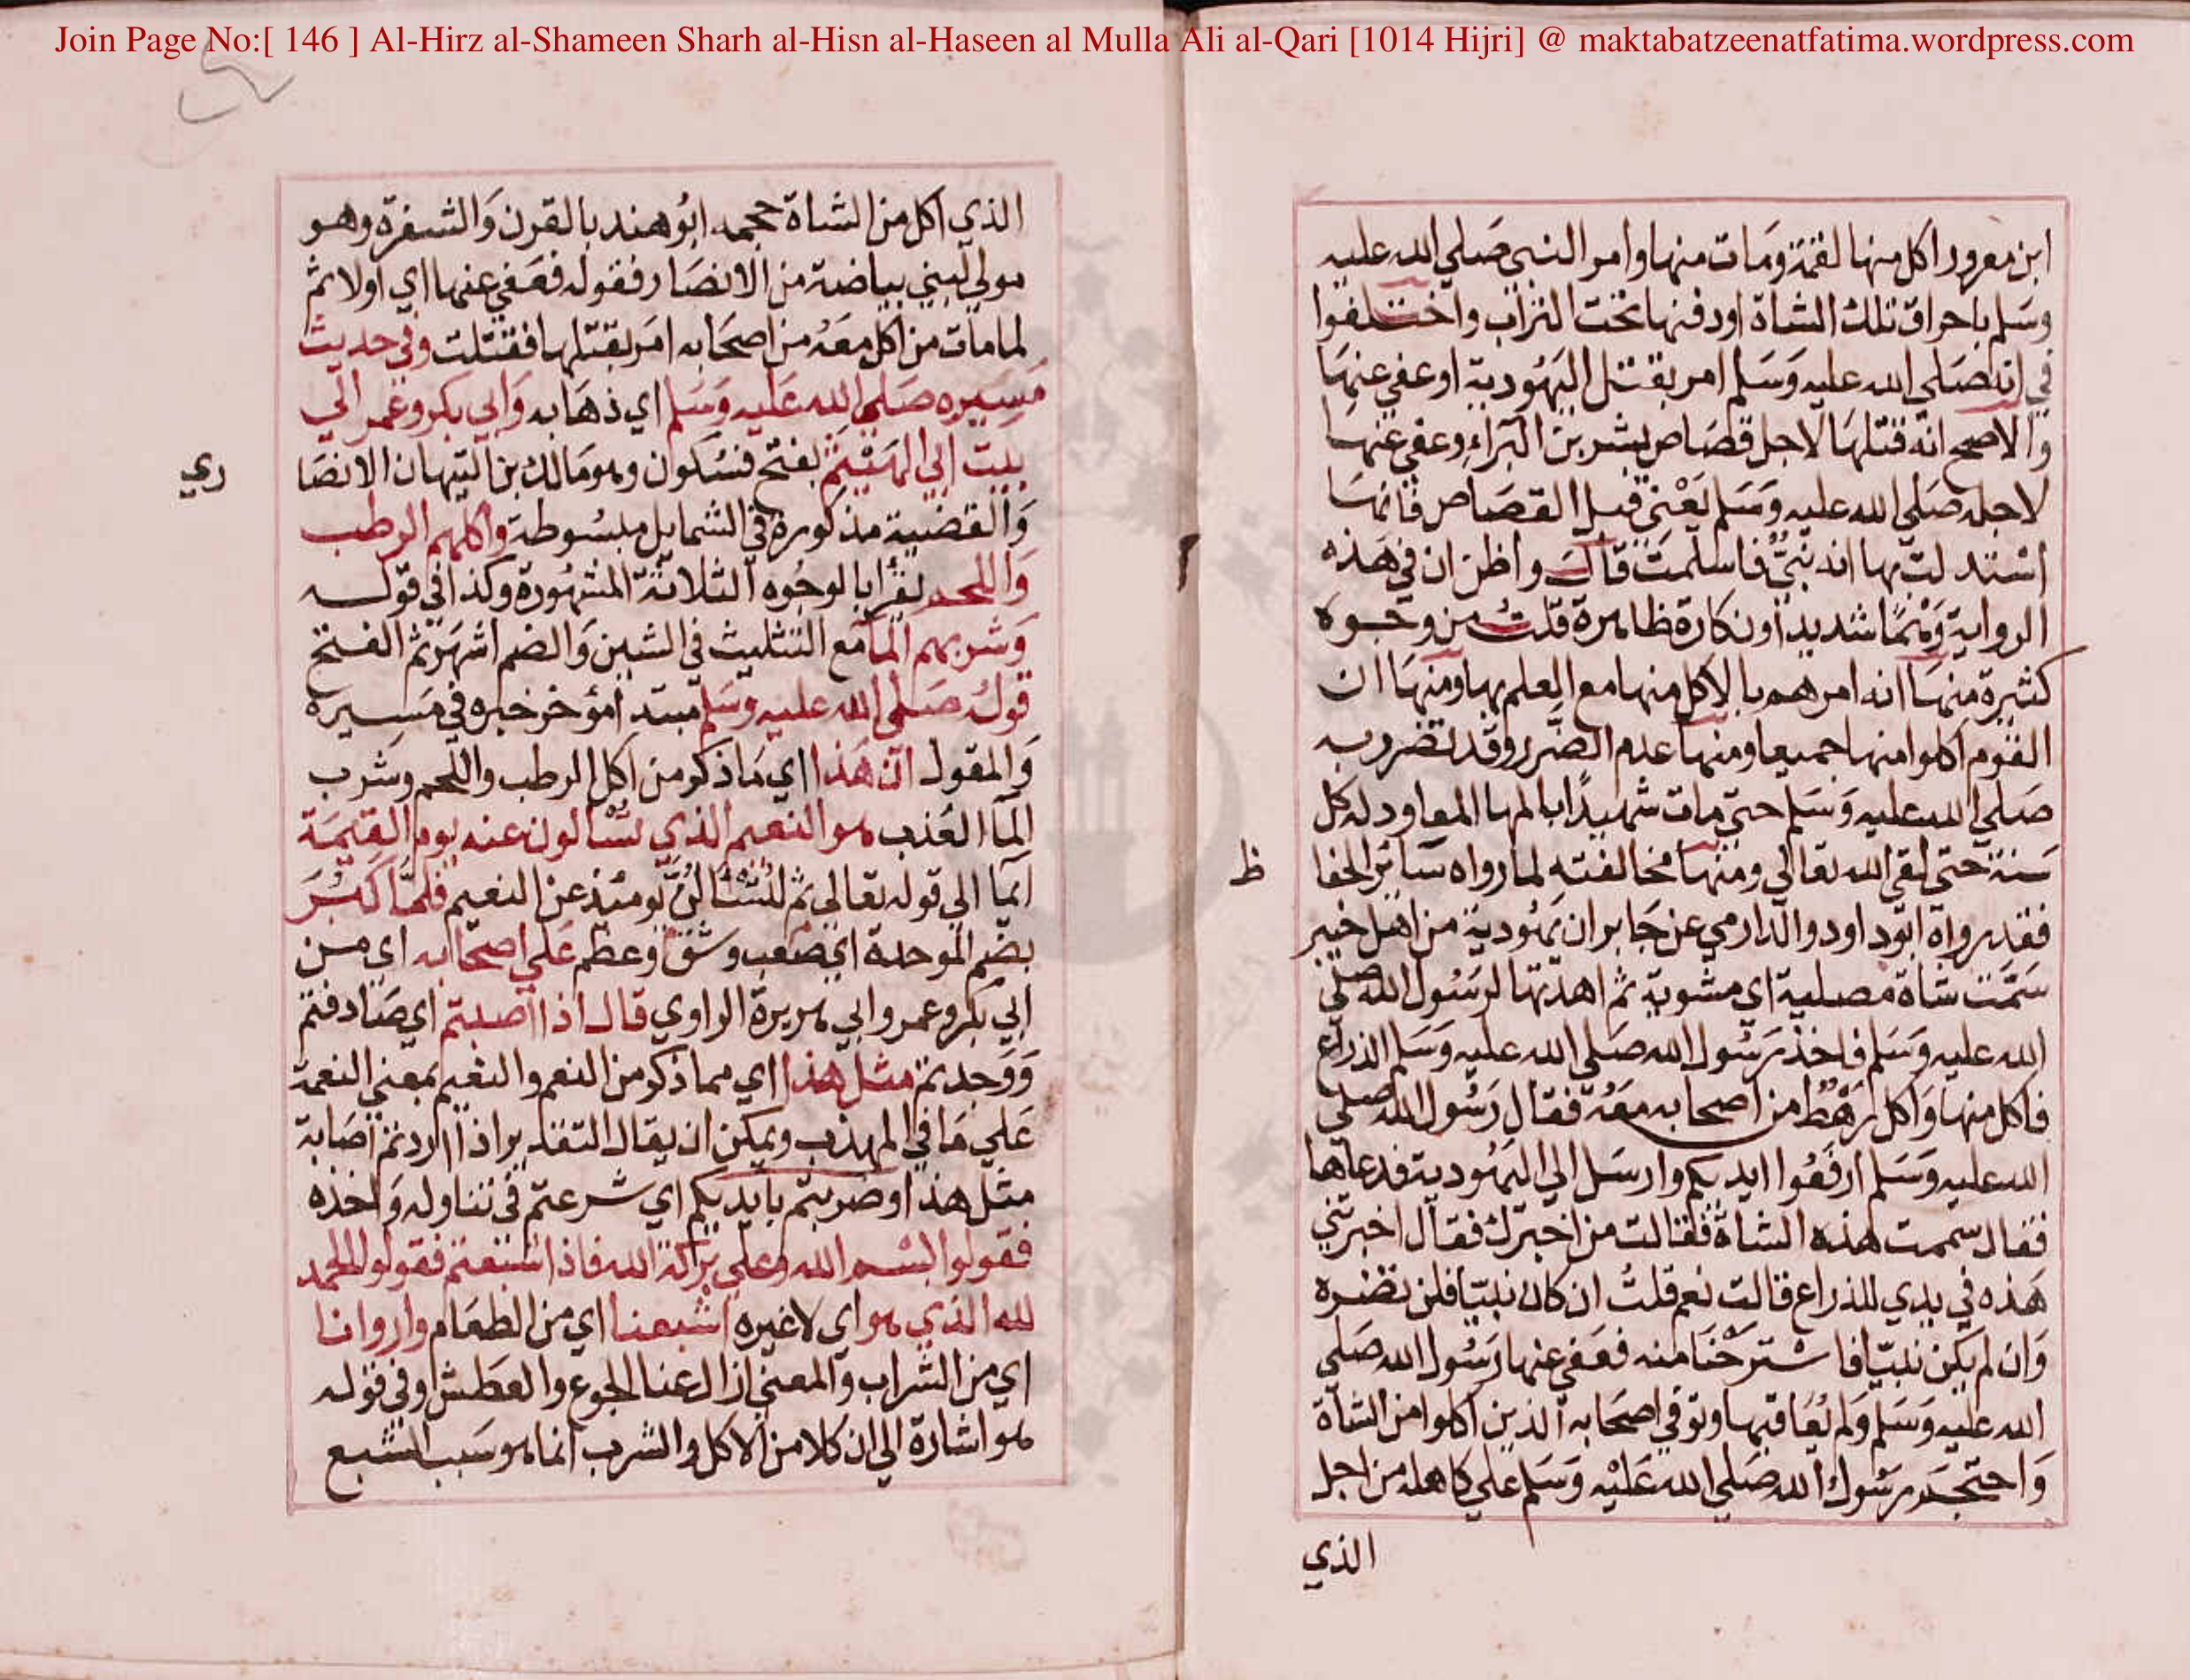 Join Page No:[ 146 ] Al-Hirz al-Shameen Sharh al-Hisn al-Haseen al Mulla Ali al-Qari [1014 Hijri] @ maktabatzeenatfatima.wordpress.com
ابن معرور اكل منها لقمة ومات منها وامر النبي صلي الله عليه
وسلم باحراق تلك الشاة او دفنها تحت التراب واختلفوا
في انه صلي الله عليه وسلم امر بقتل اليهودية او عفي عنها
والاصح انه قتلها لاجل قصاص بشر بن البراء وعفي عنها
لاجله صلي الله عليه وسلم يعني قبل القصاص فانها
استدلت بها انه نبي فاسلمت قال واظن ان في هذه
الرواية وهما شديدا ونكارة ظاهرة قلت من وجوه
كثيرة منها انه امرهم بالاكل منها مع العلم بها ومنها ان
القوم اكلوا منها جميعا ومنها عدم الضرر وقد تضرر به
صلي الله عليه وسلم حتي مات شهيدا بالمها المعاود له كل
سنة حتي لقي الله تعالي ومنها مخالفته لما رواه سائر الحفا
ظ
فقد رواه ابو داود والدارمي عن جابر ان يهودية من اهل خيبر
سمت شاة مصلية اي مشوية ثم اهدتها لرسول الله صلي
الله عليه وسلم فاخذ رسول الله صلي الله عليه وسلم الذراع
فاكل منها واكل رهط من اصحابه معه فقال رسول الله صلي
الله عليه وسلم ارفعوا ايديكم وارسل الي اليهودية فدعاها
فقال سممت هذه الشاة فقالت من اخبرك فقال اخبرتني
هذه في يدي للذراع قالت نعم قلت ان كان نبيا فلن تضره
وان لم يكن نبيا فاسترحنا منه فعفي عنها رسول الله صلي
الله عليه وسلم ولم يعاقبها وتوفي اصحابه الذين اكلوا من الشاة
واحتجم رسول الله صلي الله عليه وسلم علي كاهله من اجل
الذي
الذي اكل من الشاة حجمه ابو هند بالقرن والشفرة وهو
مولي لبني بياضة من الانصار فقوله فعفي عنها اي اولا ثم
لما مات من اكل معه من اصحابه امر بقتلها فقتلت وفي حديث
مسيره صلي الله عليه وسلم اي ذهابه وابي بكر وعمر الي
بيت ابي الهيثم بفتح فسكون وهو مالك بن التيهان الانصا
ري
والقضية مذكورة في الشمايل مبسوطة واكلهم الرطب
واللحم يقرأ بالوجوه الثلاثة المشهورة وكذا في قوله
وشربهم الما مع التثليث في الشين والضم اشهر ثم الفتح
قوله صلي الله عليه وسلم مبتدا مؤخر خبره في مسيره
والمقول ان هذا اي ما ذكر من اكل الرطب واللحم وشرب
الما العذب هو النعيم الذي تسألون عنه يوم القيمة
ايما الي قوله تعالي ثم لتسألن يومئذ عن النعيم فلما كبر
بضم الموحدة اي صعب وشق وعظم علي اصحابه اي من
ابي بكر وعمر وابي هريرة الراوي قال اذا اصبتم اي صادفتم
ووجدتم مثل هذا اي مما ذكر من النعم والنعيم بمعني النعمة
علي ما في المهذب ويمكن ان يقال التقدير اذا اردتم اصابة
مثل هذا وضربتم بايديكم اي شرعتم في تناوله واخذه
فقولوا بسم الله وعلي بركة الله فاذا شبعتم فقولوا الحمد
لله الذي هو اي لا غيره اشبعنا اي من الطعام واروانا
اي من الشراب والمعني ازال عنا الجوع والعطش وفي قوله
هو اشارة الي ان كلا من الاكل والشرب انما هو سبب للشبع